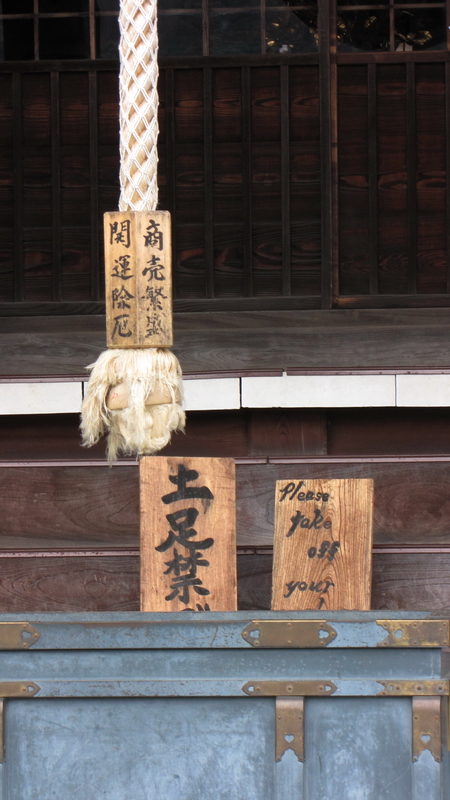 商売繁盛
開運除厄
土足禁
Please
take
off
your